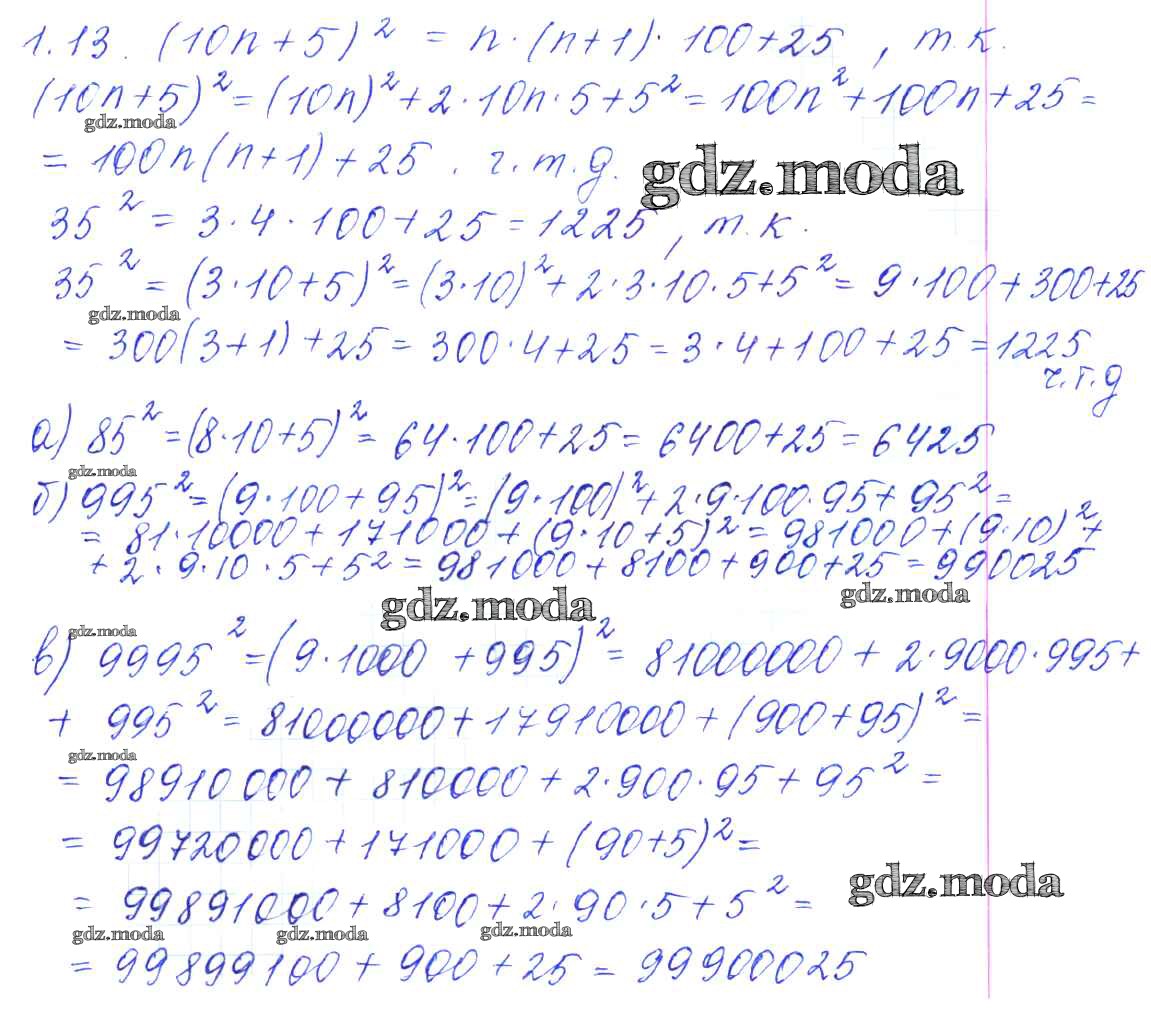 1.13. (10n+5)² = n·(n+1)·100+25, т.к.
(10n+5)² = (10n)² + 2·10n·5+5² = 100n² + 100n + 25 =
gdz.moda
= 100n(n+1) + 25. ч.т.д.
gdz.moda
35² = 3·4·100+25 = 1225, т.к.
35² = (3·10+5)² = (3·10)² + 2·3·10·5+5² = 9·100 + 300+25
gdz.moda
= 300(3+1) + 25 = 300·4+25 = 3·4+100+25 = 1225
ч.т.д
а) 85² = (8·10+5)² = 64·100+25 = 6400+25 = 6425
gdz.moda
б) 995² = (9·100+95)² = (9·100)² + 2·9·100·95 + 95² =
= 81·10000 + 171000 + (9·10+5)² = 981000 + (9·10)² +
+ 2·9·10·5+5² = 981000 + 8100 + 900+25 = 990025
gdz.moda
gdz.moda
gdz.moda
в) 9995² = (9·1000 + 995)² = 81000000 + 2·9000·995+
+ 995² = 81000000 + 17910000 + (900+95)² =
gdz.moda
= 98910000 + 810000 + 2·900·95 + 95² =
= 99720000 + 171000 + (90+5)² =
gdz.moda
= 99891000 + 8100 + 2·90·5 + 5² =
gdz.moda gdz.moda gdz.moda
= 99899100 + 900 + 25 = 99900025